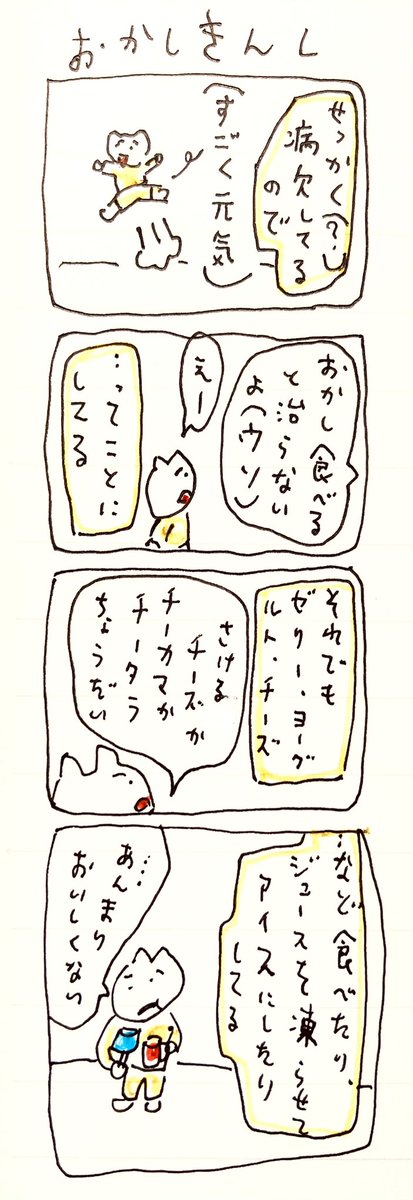 おかしきんし
せっかく(?)
病欠してる
ので
(すごく元気)
おかし食べる
と治らない
よ(ウソ)
えー
…ってことに
してる
それでも
ゼリー・ヨーグ
ルト・チーズ
さける
チーズか
チーカマか
チータラ
ちょうだい
…など食べたり、
ジュースを凍らせて
アイスにしたり
してる
…
あんまり
おいしくない